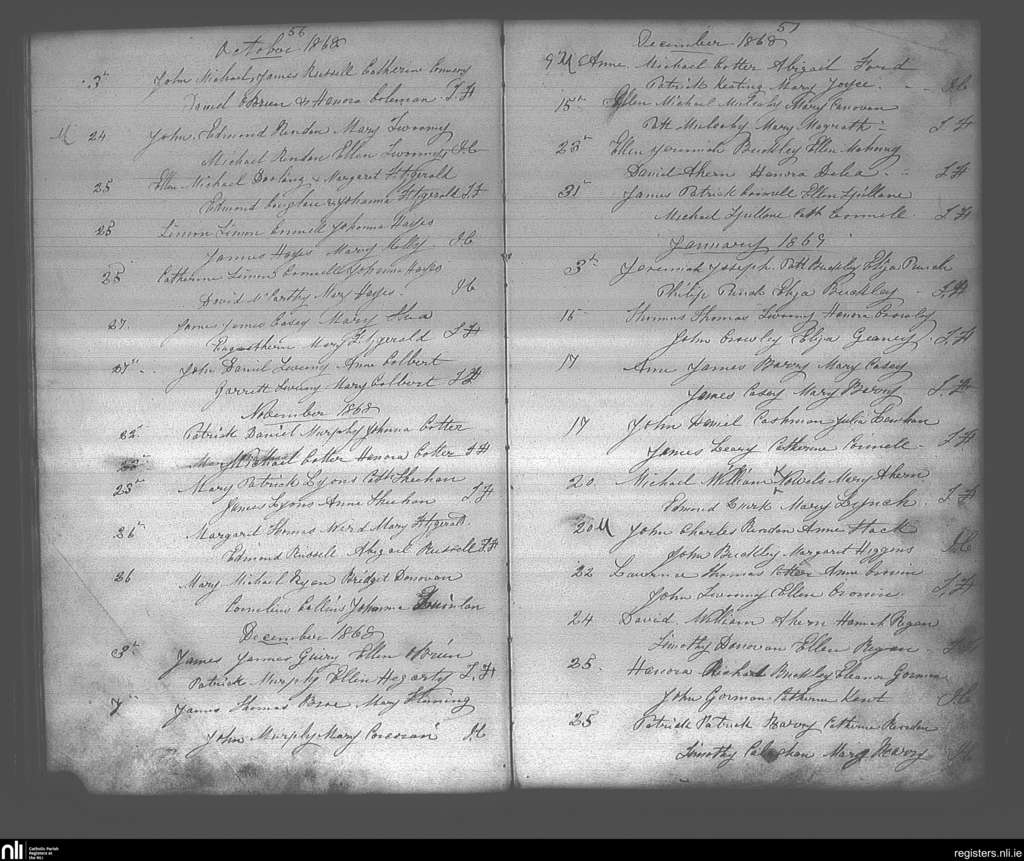 56
October 1868
3rd John Michael, James Russell Catherine Connery
Daniel OBrien & Honora Coleman T. H
M 24 John, Edmond Rendon Mary Twoomy
Michael Rendon Ellen Twoomy D C
25 Ellen Michael Dooling & Margaret Fitzgerald
Edmond & Johanna Fitzgerald T. H
25 Simon Simon Connell Johanna Hayes
James Hayes Mary Kelly. D C
25 Catherine Simon Connell Johanna Hayes
David McCarthy Mary Hayes. D C
27. James James Casey Mary Shea
Mary Fitzgerald T H
John Daniel Twoomy Anne Colbert
Garrett Twoomy Mary Colbert T H
November 1868
22 Patrick Daniel Murphy Johanna Cotter
Michael Cotter Honora Cotter T H
23rd Mary Patrick Lyons Cath Sheehan
James Lyons Anne Sheehan T. H
26th Margaret Thomas Ward Mary Fitzgerald.
Edmond Russell Abigail Russell T. H
26 Mary Michael Ryan Bridget Donovan
Cornelius Collins Johanna Quinlan
December 1868
3rd James James Guiry Ellen OBrien
Patrick Murphy Ellen Hogarty T. H
7 James Thomas Mary
John Murphy Mary Corcoran D C
57
December 1868
9 M Anne. Michael Cotter Abigail Ford
Patrick Keating Mary Joyce. D C
15th Ellen Michael Mulcahy Mary Canovan
Patt Mulcahy Mary Magrath T. H
23rd Ellen Jeremiah Buckley Ellen Mahony
David Ahern Honora Dalea T. H
31st James Patrick Connell Ellen Gullane
Michael Gullane Cath Connell. T. H
January 1869
3rd Jeremiah Joseph. Patt Buckley Eliza Punch
Philip Punch Eliza Buckley T. H
15 Thomas Thomas Twoomy Honora Crowley
John Crowley Eliza Geaney. T. H
17 Anne James Barry Mary Casey
James Casey Mary Barry T. H
17 John Daniel Cashman Julia Lenihan
James Leary Catherine Connell T. H
20. Michael William Vowels Mary Ahern
Edmond Quirk Mary Lynch T. H
20 M John Charles Rendon Anne Stack
John Buckley Margaret Higgins D C
22 Lawrence Thomas Cotter Anne Cronin
John Twoomy Ellen Cronin. T. H
24 David. William Ahern Hannah Regan
Timothy Donovan Ellen Regan T H
25. Honora Richard Buckley Eleanor Gorman
John Gorman Catherine Kent D C
25 Patrick Patrick Barry Catherine Rendon
Timothy Callaghan Mary Barry D C
nli Catholic Parish Registers at the NLI
registers.nli.ie